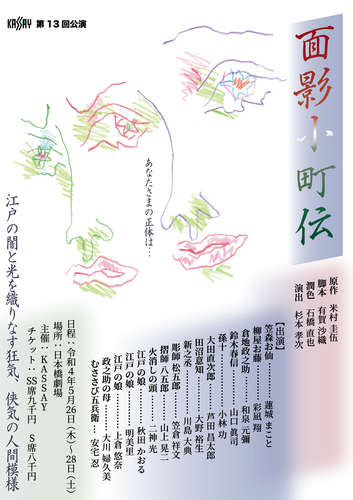 KASSAY 第13回公演
面影小町伝
原作 米村圭伍
脚本 有賀沙織
潤色 石橋直也
演出 杉本孝次
あなたさまの正体は…
【出演】
笠森お仙……蓮城まこと
柳屋お藤……彩凪 翔
倉地政之助……和泉元彌
鈴木春信……山口眞司
孫十……小林 功
大田直次郎……芦田昌太郎
田沼意知……大野裕生
新之丞……川島大典
彫師 松五郎……笠倉祥文
摺師 八五郎……山上晃二
火消しの頭……二神 光
江戸の娘……秋田かおる
江戸の娘……明美里
江戸の娘……上倉悠奈
政之助の母……大川婦久美
むささび五兵衛……安宅 忍
日程：令和4年5月26日（木）〜28日（土）
場所：日本橋劇場
主催：KASSAY
チケット：SS席九千円 S席八千円
江戸の闇と光を織りなす狂気、侠気の人間模様